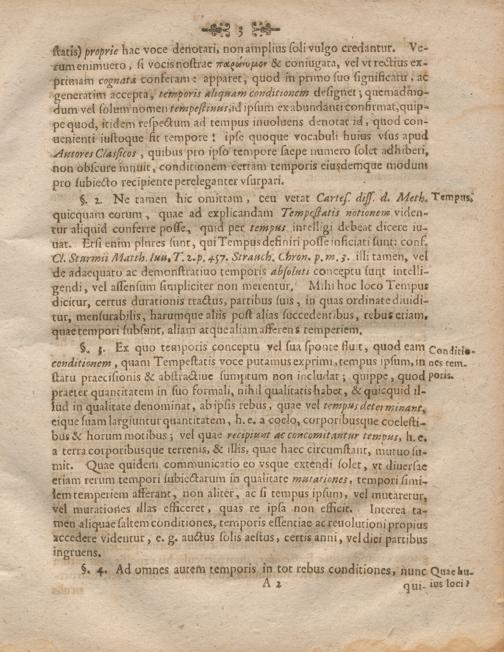 3
statis) proprie hac voce denotari, non amplius soli vulgo credantur. Ve-
rum enimuero, si vocis nostrae παρώνυμον & coniugata, vel vt rectius ex-
primam cognata conferam: apparet, quod in primo suo significatu, ac
generatim accepta, temporis aliquam conditionem designet; quemadmo-
dum vel solum nomen tempestiuus, id ipsum ex abundanti confirmat, quip-
pe quod, itidem respectum ad tempus inuoluens denotat id, quod con-
uenienti iustoque fit tempore! ipse quoque vocabuli huius vsus apud
Autores Classicos, quibus pro ipso tempore saepe numero solet adhiberi,
non obscure innuit, conditionem certam temporis eiusdemque modum
pro subiecto recipiente pereleganter vsurpari.
§. 2. Ne tamen hic omittam, ceu vetat Cartes. diss. d. Meth. Tempus.
quicquam eorum, quae ad explicandam Tempestatis notionem viden-
tur aliquid conferre posse, quid per tempus intelligi debeat dicere iu-
uat. Etsi enim plures sunt, qui Tempus definiri posse inficiati sunt: conf.
Cl. Sturmii Math. Iuu. T. 2. p. 457. Strauch. Chron. p. m. 3. illi tamen, vel
de adaequato ac demonstratiuo temporis absoluti conceptu sunt intelli-
gendi, vel assensum simpliciter non merentur. Mihi hoc loco Tempus
dicitur, certus durationis tractus, partibus suis, in quas ordinate diuidi-
tur, mensurabilis, harumque aliis post alias succedentibus, rebus etiam,
quae tempori subsunt, aliam atque aliam afferens temperiem.
§. 3. Ex quo temporis conceptu vel sua sponte fluit, quod eam Conditio-
conditionem, quam Tempestatis voce putamus exprimi, tempus ipsum, in nes tem-
statu praecisionis & abstractiue sumptum non includat; quippe, quod poris.
praeter quantitatem in suo formali, nihil qualitatis habet, & quicquid il-
lud in qualitate denominat, ab ipsis rebus, quae vel tempus determinant,
eique suam largiuntur quantitatem, h. e. a coelo, corporibusque coelesti-
bus & horum motibus; vel quae recipiunt ac concomitantur tempus, h. e.
a terra corporibusque terrenis, & illis, quae haec circumstant, mutuo su-
mit. Quae quidem communicatio eo vsque extendi solet, vt diuersae
etiam rerum tempori subiectarum in qualitate mutationes, tempori simi-
lem temperiem afferant, non aliter, ac si tempus ipsum, vel mutaretur,
vel mutationes illas efficeret, quas re ipsa non efficit. Interea ta-
men aliquae saltem conditiones, temporis essentiae ac reuolutioni propius
accedere videntur, e. g. auctus solis aestus, certis anni, vel diei partibus
ingruens.
§. 4. Ad omnes autem temporis in tot rebus conditiones, nunc Quae hu-
A 2 qui- ius loci?